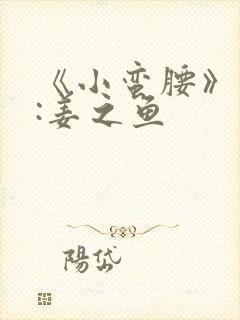 《小蛮腰》
:姜之鱼
陽岱